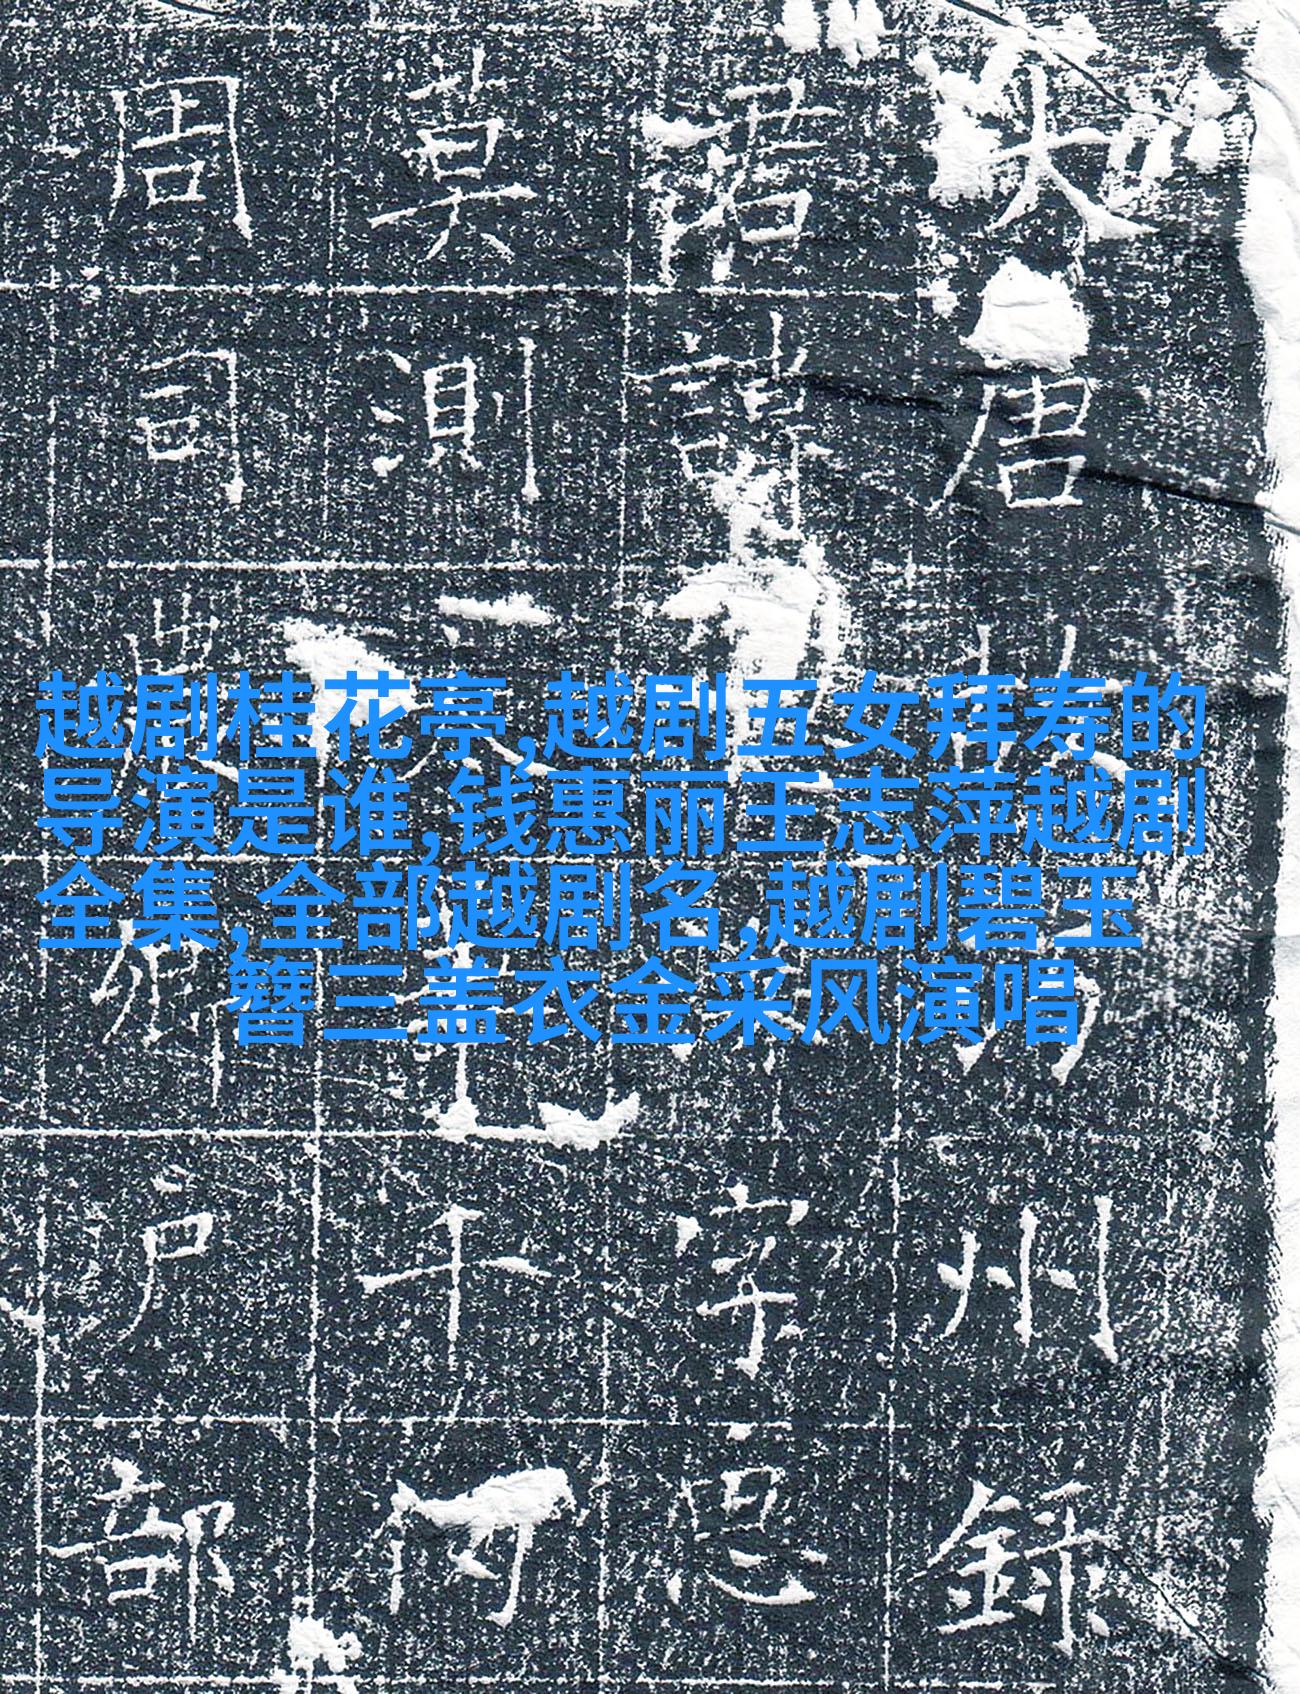 越剧桂花亭,越剧五女拜寿的
导演是谁,钱惠丽王志萍越剧
全集,全部越剧名,越剧碧玉
簪三盖衣金采风演唱
大唐故州錄
君諱字思
莫測干
周司農卿戶部